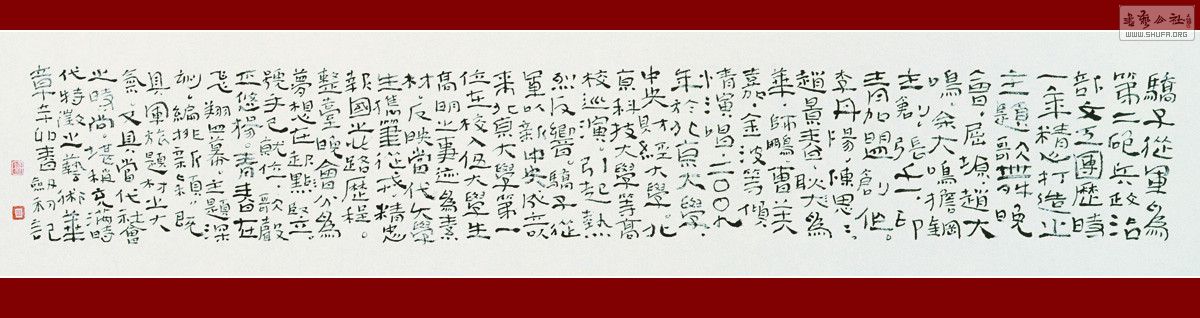 驕子從軍為
第二砲兵政治
部文工團歷時
一年精心打造之
主題歌舞晚
會，屈塬、趙大
鳴、余大鳴擔綱
主創，張千一、印
青加盟創作。
李丹陽、陳思思、
趙景春、耿大為
華、師鵬、曹芙
嘉、金波等傾
情演唱。二〇〇九
年於北京大學、
中央財經大學、北
京科技大學等高
校巡演，引起熱
烈反響。驕子從
軍以新中央
來北京大學第一
位在校入伍大學生
高明之事迹為素
材，反映當代大學
生攜筆從戎、精忠
報國之心路歷程。
整臺晚會分為
夢想在起點、
號手已就位、歌聲
正悠楊、青春在
飛翔四幕，主題深
刻，編排新穎，既
具軍旅題材之大
氣，又具當代社會
之時尚，堪稱充滿時
代特徵之藝術華
章。辛卯書 劍初記
書藝公社
WWW.SHUFA.ORG